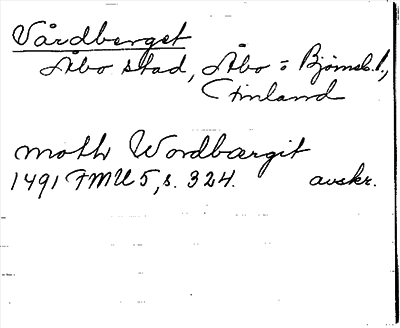 Vårdberget
Åbo stad, Åbo o Björneb. l.,
Finland
moth Wordbærgit
1491 FMU 5, s. 324. avskr.